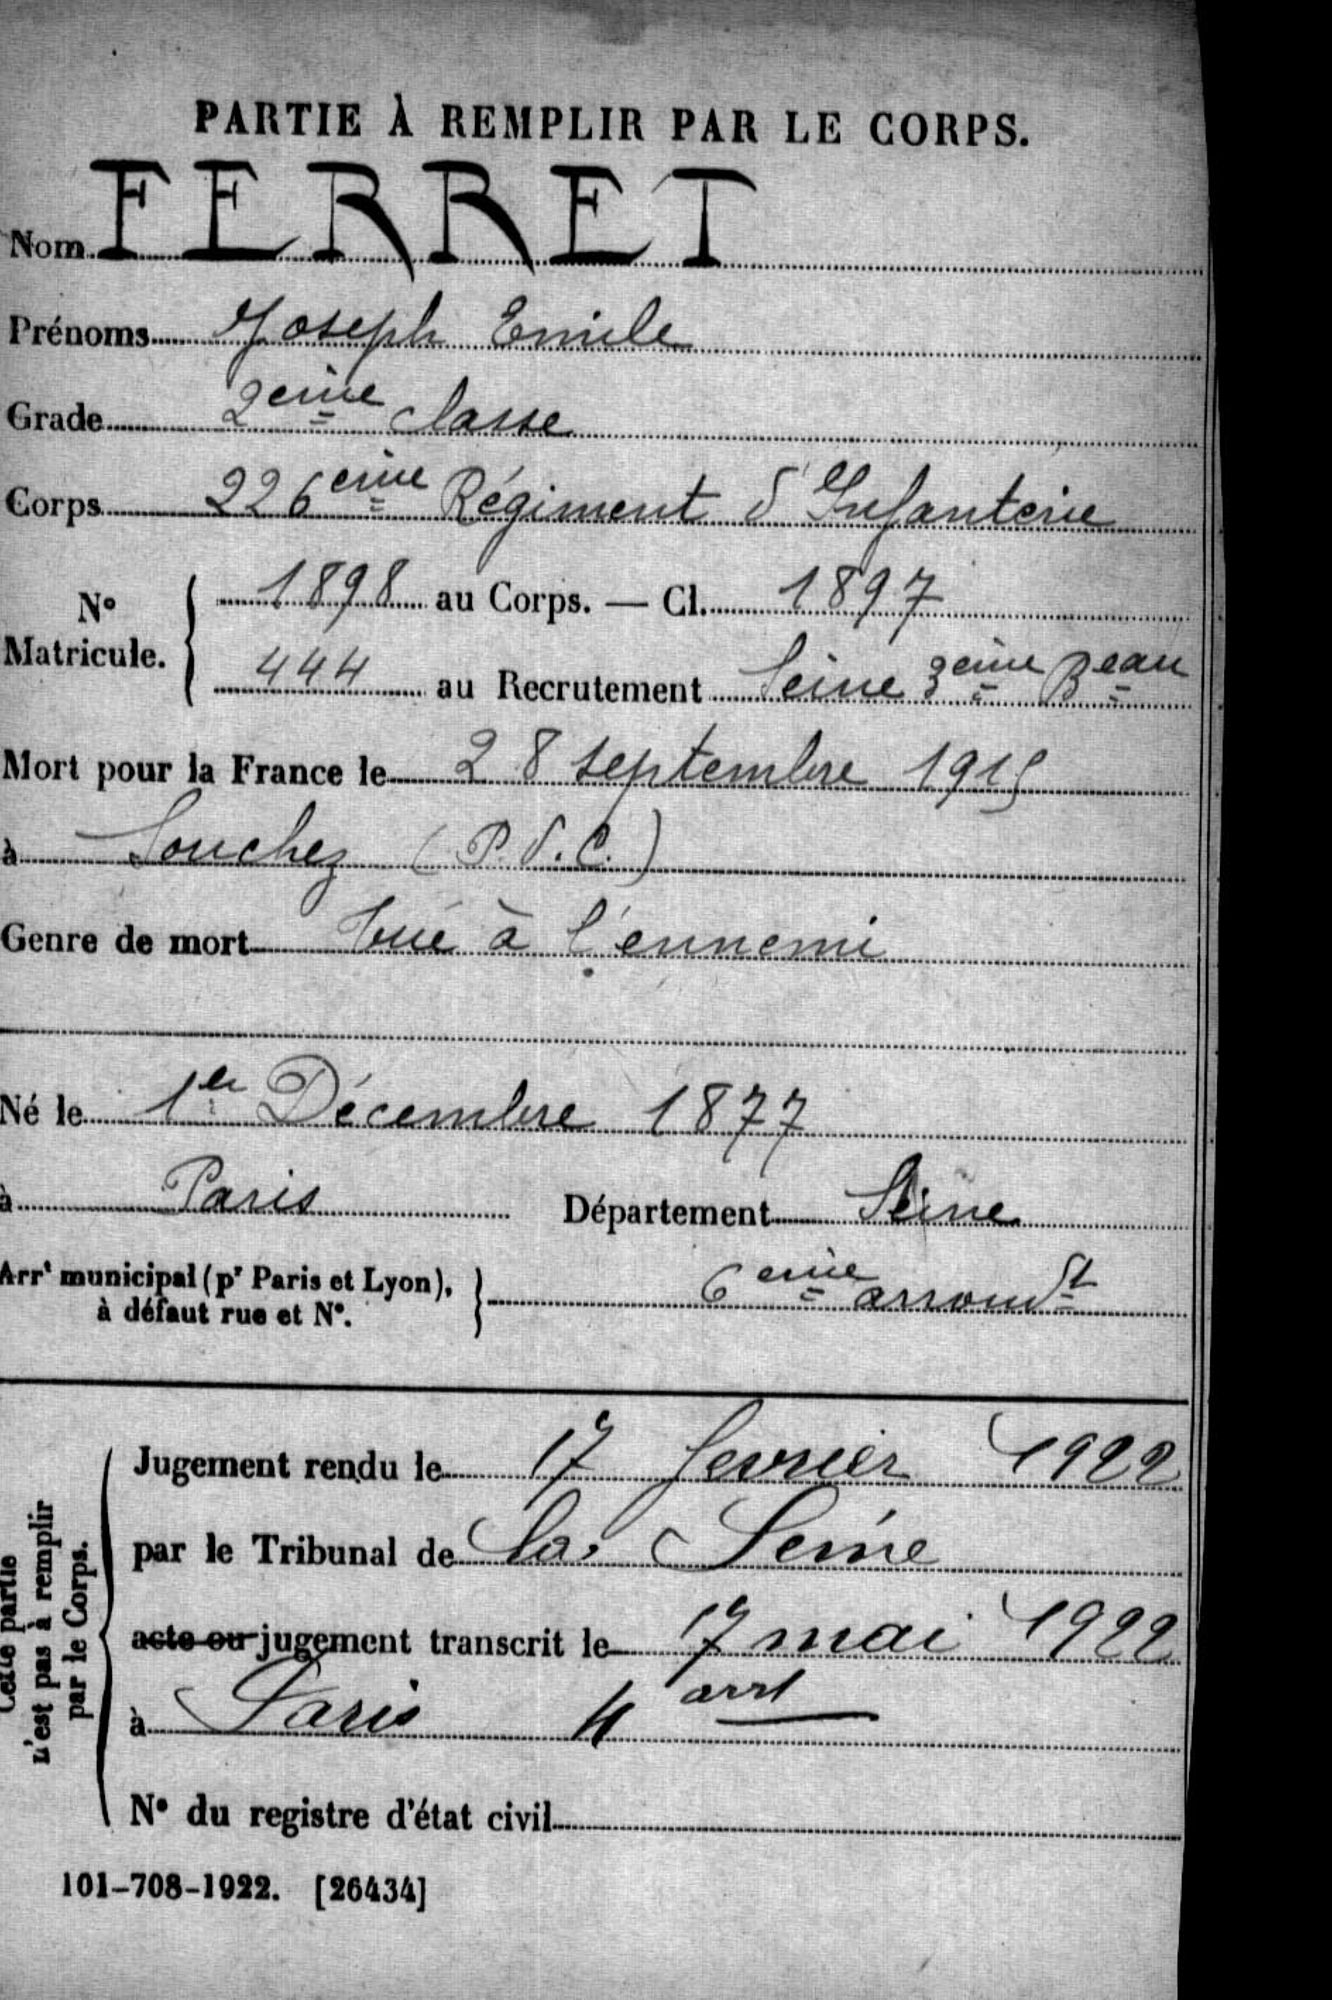 PARTIE À REMPLIR PAR LE CORPS.
Nom FERRET
Prénoms Joseph Emile
Grade 2eme classe
Corps 226eme Régiment d'Infanterie
N° Matricule. 1898 au Corps. — Cl. 1897
444 au Recrutement Seine 3eme Beau
Mort pour la France le 28 septembre 1915
à Souchez (P.d.C.)
Genre de mort tué à l'ennemi
Né le 1er Décembre 1877
à Paris Département Seine
Arrt municipal (pr Paris et Lyon), à défaut rue et N°. 6eme arrondt
Cette partie n'est pas à remplir par le Corps.
Jugement rendu le 17 fevrier 1922
par le Tribunal de La Seine
acte ou jugement transcrit le 17 mai 1922
à Paris 4 arrt
N° du registre d'état civil
101-708-1922. [26434]